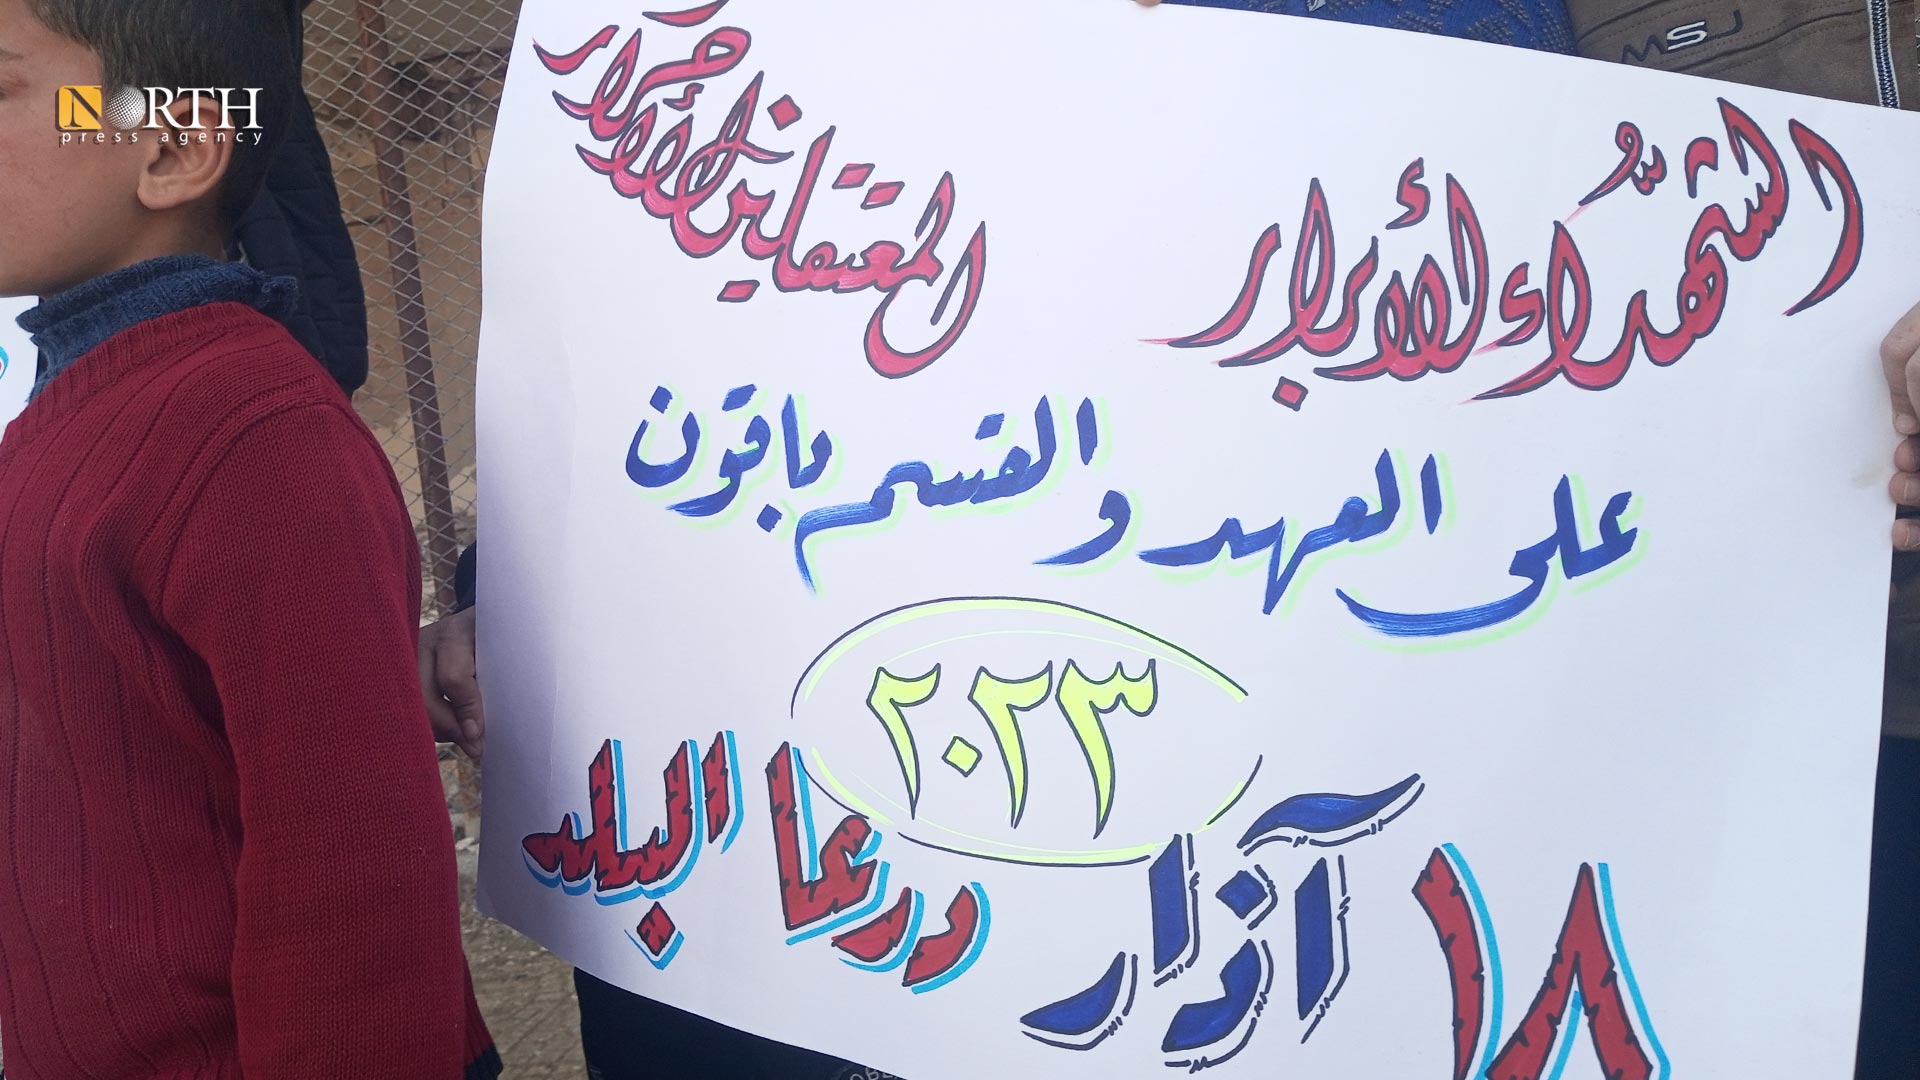 NORTH
press agency
MSJ
الشُّهداء الأبرار المعتقلين الأحرار
على العهد والقسم باقون
٢٠٢٣
١٨ آذار درعا البلد